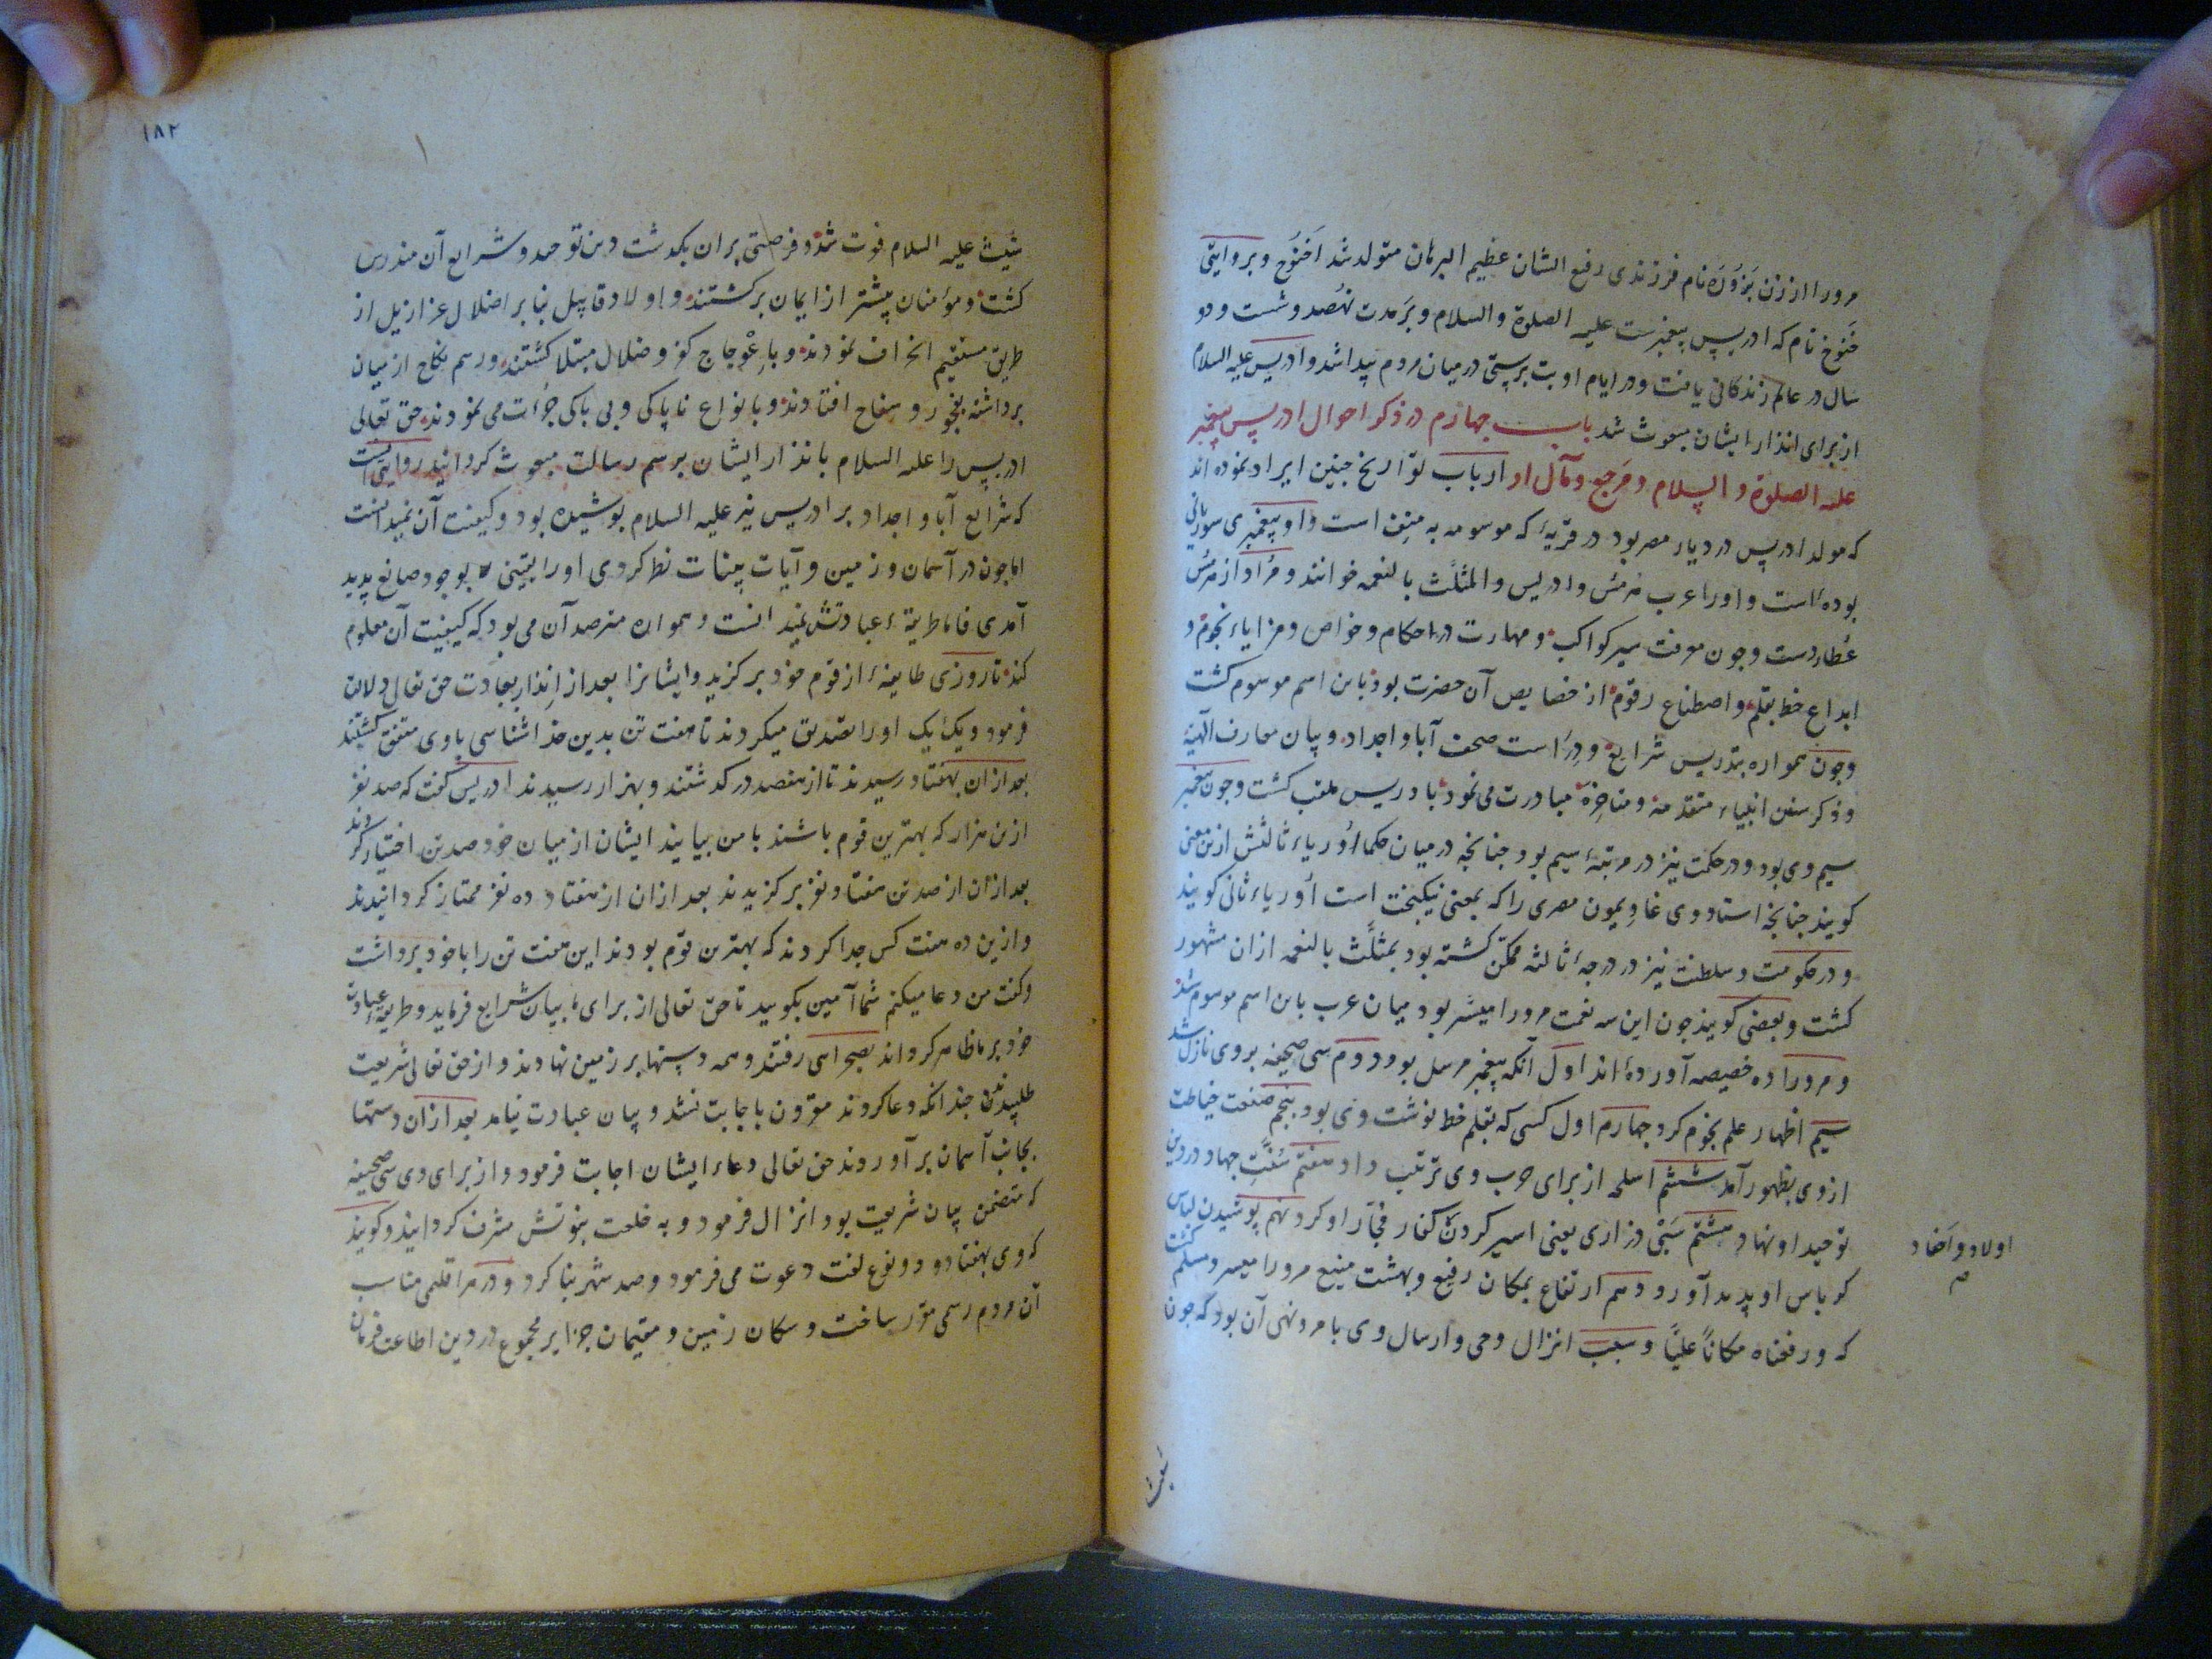 مرورا از زن بَزوَرَه نام فرزندی رفیع الشان عظیم البرهان متولد شد اَخنوَخ و بروایتی
خَنوَخ نام که ادریس پیغمبرست علیه الصلوة والسلام و بَر مدت نهصد و شست و دو
سال در عالم زندکانی یافت و در ایام او بت پرستی در میان مردم پیدا شد و ادریس علیه السلام
از برای انذار ایشان مبعوث شد باب جهارم در ذکر احوال ادریس پیغمبر
علیه الصلوة و السلام و مرجع و مآل او ارباب تواریخ جنین ایراد نموده اند
که مولد ادریس در دیار مصر بود در قریهٔ که موسومه به منف است و او پیغمبری سوریانی
بوده است و او را عرب هرمس و ادریس و المثلّث بالنعمه خوانند و مُراد از هرمس
عُطاردست و جون معرفت سیر کواکب و مهارت در احکام و خواص و مزایاء نجوم و
ابداع خط بقلم و اصطناع رقوم از خصایص آن حضرت بود باین اسم موسوم کشت
و جون همواره بتدریس شرایع و دِرَاست صحف آبا و اجداد و بیان معارف الهیّه
و ذکر سنن انبیاء متقدمه و متاخِره مبادرت می نمود بادریس ملقب کشت و جون پیغمبر
سیم وی بود و در حکمت نیز در مرتبهٔ سیم بود جنانجه در میان حکما اُوریاء ثالثش ازین معنی
کویند جنانجه استاد وی غاذیمون مصری را که بمعنی نیکبخت است اُوریاء ثانی کویند
و در حکومت و سلطنت نیز در درجهٔ ثالثه ممکن کشته بود بمثلَّث بالنعمه ازان مشهور
کشت و بعضی کویند جون این سه نعمت مرورا میسّر بود میان عرب باین اسم موسوم شد
و مرورا ده خصیصه آورده اند اول آنکه پیغمبر مرسل بود دوم سی صحیفه بروی نازل شد
سیم اظهار علم نجوم کرد جهارم اول کسی که بقلم خط نوشت وی بود پنجم صنعت خیاطت
ازوی بظهور آمد ششم اسلحه از برای حرب وی ترتیب داد هفتم سُنّتِ جهاد در دین
توحید او نهاد هشتم سَبْی ذراری یعنی اسیر کردن کفار فجّار او کرد نهم پوشیدن لباس
کرباس او پدید آورد دهم ارتفاع بمکان رفیع و بهشت منیع مرورا میسر و مسلم کشت
که ورفعناه مکاناً علیّاً و سبب انزال وحی و ارسال وی بامر و نهی آن بود که جون
اولاد و اَحفاد
شیث
١٨٢
شیث علیه السلام فوت شد و فرصتی بران بکذشت دین توحید و شرایع آن مندرس
کشت و مؤمنان بیشتر از ایمان برکشتند و اولاد قابیل بنا بر اضلال عزازیل از
طریق مستقیم انحراف نمودند و بِاعْوِجاج کفر و ضلال مبتلا کشتند و رسم نکاح از میان
برداشته بفجور و سفاح افتادند و بانواع ناپاکی و بی باکی جرُات می نمودند حق تعالی
ادریس را علیه السلام بانذار ایشان برسم رسالت مبعوث کردانید روایتی است
که شرایع آبا و اجداد بر ادریس نیز علیه السلام پوشیده بود و کیفیت آن نمیدانست
اما جون در آسمان و زمین و آیات بینات نظر کردی اورا یقینی بوجود صانع پدید
آمدی فاما طریقهٔ عبادتش نمیدانست و همواره مترصد آن می بود که کیفیت آن معلوم
کند تا روزی طایفهٔ از قوم خود برکزید و ایشانرا بعد از اِنذار بعبادت حق تعالی دلالت
فرمود و یک یک اورا تصدیق میکردند تا هفت تن بدین خدا شناسی باوی متفق کشتند
بعد ازان بهفتاد رسیدند تا از هفتصد درکذشتند و بهزار رسیدند ادریس کفت که صد نفر
ازین هزار که بهترین قوم باشند با من بیایند ایشان از میان خود صد تن اختیار کردند
بعد ازان از صد تن هفتاد نفر برکزیدند بعد ازان از هفتاد ده نفر ممتاز کردانیدند
و ازین ده هفت کس جدا کردند که بهترین قوم بودند این هفت تن را با خود برداشت
و کفت من دعا میکنم شما آمین بکویید تا حق تعالی از برای ما بیان شرایع فرماید و طریقهٔ عبادت
خود بر ما ظاهر کرداند بصحراسی رفتند و همه دستها بر زمین نهادند و از حق تعالی شریعت
طلبیدند جندانکه دعا کردند مقرون باجابت نشد و بیان عبادت نیامد بعد ازان دستها
بجانب آسمان برآوردند حق تعالی دعاء ایشان اجابت فرمود و از برای وی سی صحیفه
که متضمن بیان شریعت بود انزال فرمود و به خلعت نبوتش مشرف کردانید و کویند
که وی بهفتاد و دو نوع لغت دعوت می فرمود و صد شهر بنا کرد و در هر اقلمی مناسب
آن مردم رسمی مقرر ساخت و سکان زمین و مقیمان جزایر مجموع در دین اطاعت فرمان